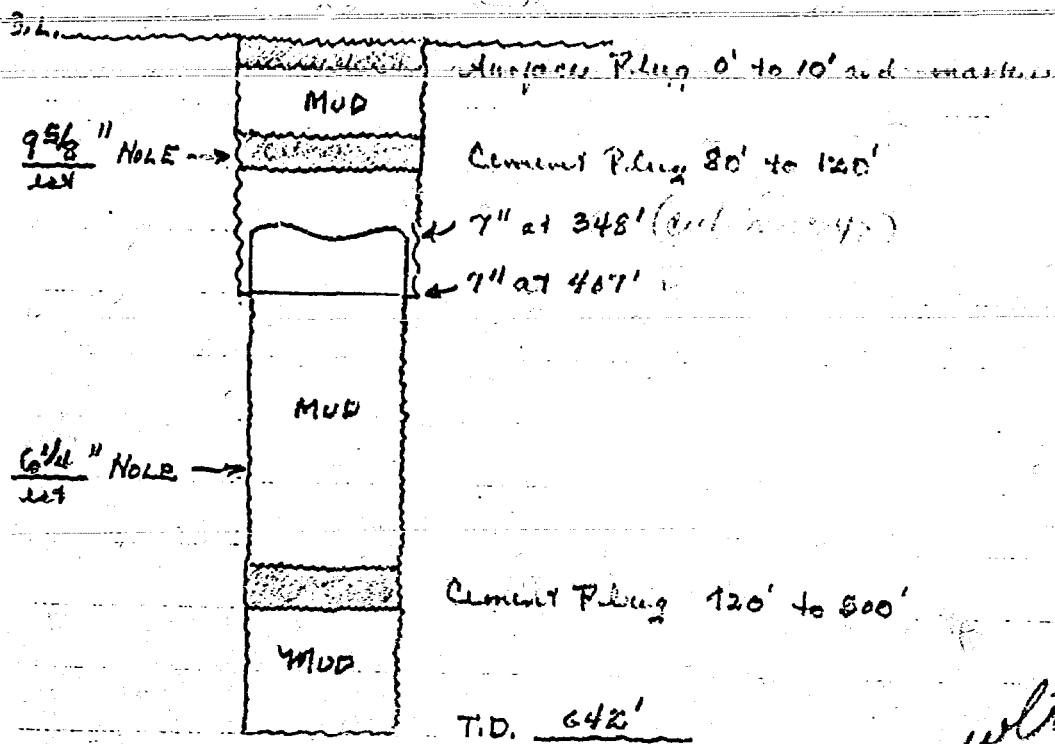 Surface Plug 0' to 10' and marker
MUD
9 5/8 " HOLE
Cement Plug 80' to 120'
7" at 348'
7" at 467'
MUD
6 1/4 " HOLE
Cement Plug 420' to 500'
MUD
T.D. 642'